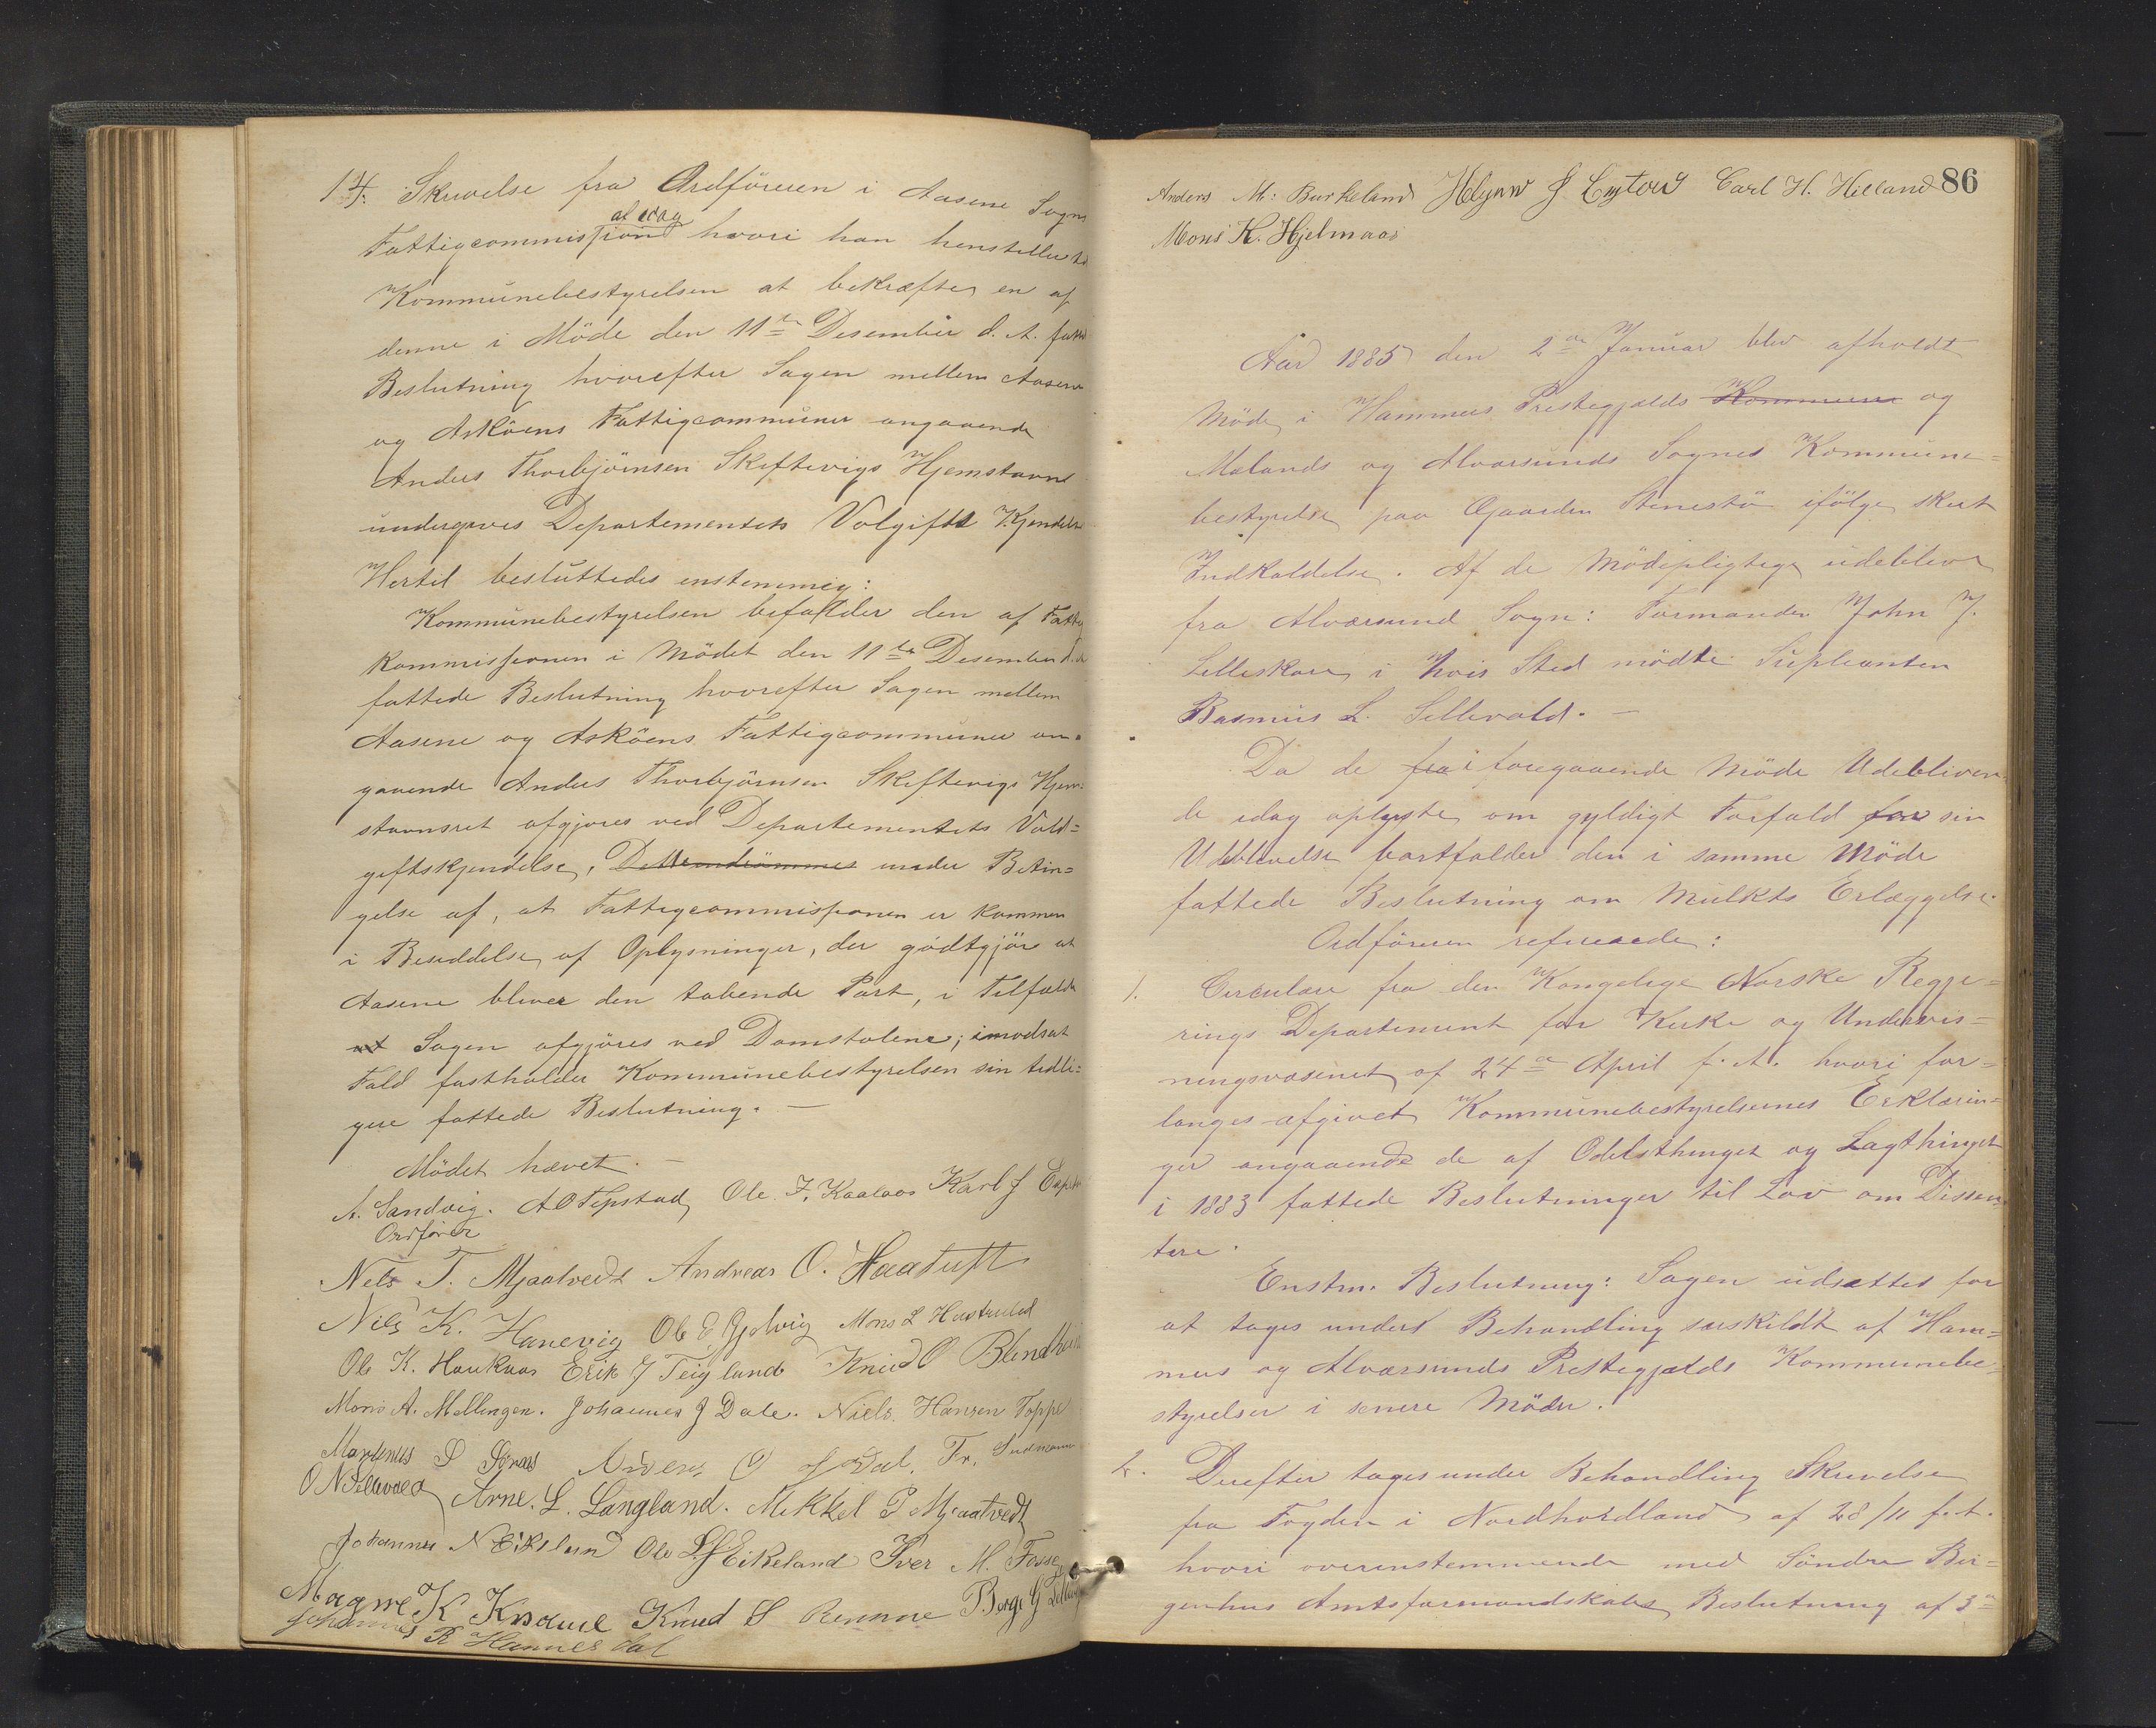 14. Skrivelse fra Ordföreren i Aasene Sogns
af idag
Fattigcommission hvori han henstiller til
Kommunebestyrelsen at bekræfte en af
denne i Möde den 11te Desember d. A. fattet
Beslutning hvorefter Sagen mellem Aasene
og Asköens Fattigcommuner angaaende
Anders Thorbjörnsen Skeftevigs Hjemstavn
undergives Departementets Volgifts Kjendelse
Hertil besluttedes enstemmig:
Kommunebestyrelsen befalder den af Fattig
kommissionen i Mödet den 11te Desember d. A.
fattede Beslutning hvorefter Sagen mellem
Aasene og Asköens Fattigcommuner an=
gaaende Anders Thorbjörnsen Skeftevigs Hjem=
stavnsret afgjöres ved Departementets Vold=
giftskjendelse, under Betin=
gelse af, at Fattigcommissionen er kommen
i Besiddelse af Oplysninger, der godtgjör at
Aasene bliver den tabende Part, i Tilfælde
at Sagen afgjöres ved Domstolene; imodsat
Fald fastholder Kommunebestyrelsen sin tidli=
gere fattede Beslutning. —
Mödet hævet. —
A. Sandvig. A O Tepstad Ole J. Kaalaas Karl J
Ordförer
Nels T. Mjaatvedt Andreas O. Haatuft
Nils K. Hanevig Ole E Gjelvig Mons L
Ole K. Haukaas Erik J Teigland Knud O Blindheim
Mons A. Mellingen. Johannes J Dale. Niels Hansen Toppe
Martinus S Anders O Dal. Fr.
O N Sellevold Arne. L. Langland. Mikkel P Mjaatvedt
Johannes N Eikeland Ole Eikeland Iver M. Fosse
Magne K Knud S Rennne Børge G
Johannes R Hannesdal
Anders M: Burkeland J Carl H. Helland 86
Mons K. Hjelmaas
Aar 1885 den 2de Januar blev afholdt
Möde i Hammers Prestegjælds Kommune og
Mælands og Alværsunds Sognes Kommune=
bestyrelse paa Gaarden Stenestö ifölge skeet
Indkaldelse. Af de Mödepligtige udeblev
fra Alværsund Sogn: Formanden John J.
Lilleskare, i hvis Sted mödte Supleanten
Rasmus L. Sellevold. —
Da de fra i foregaaende Möde Udebliven
de idag oplyste om gyldigt Forfald for sin
Udeblivelse bortfalder den i samme Möde
fattede Beslutning om Mulkts Erlæggelse.
Ordföreren refererede:
1. Circulære fra den Kongelige Norske Regje=
rings Departement for Kirke og Undervis=
ningsvæsenet af 24de April f. A. hvori for=
langes afgivet Kommunebestyrelsernes Erklærin=
ger angaaende de af Odelsthinget og Lagthinget
i 1883 fattede Beslutninger til Lov om Dissen=
tere.
Enstm. Beslutning: Sagen udsættes for
at tages under Behandling særskildt af Ham=
mers og Alværsunds Prestegjælds Kommunebe=
styrelser i senere Möder.
2. Derefter toges under Behandling Skrivelse
fra Fogden i Nordhordland af 28/11 f. A.
hvori overenstemmende med Söndre Ber=
genhus Amtsformandskabs Beslutning af 3de